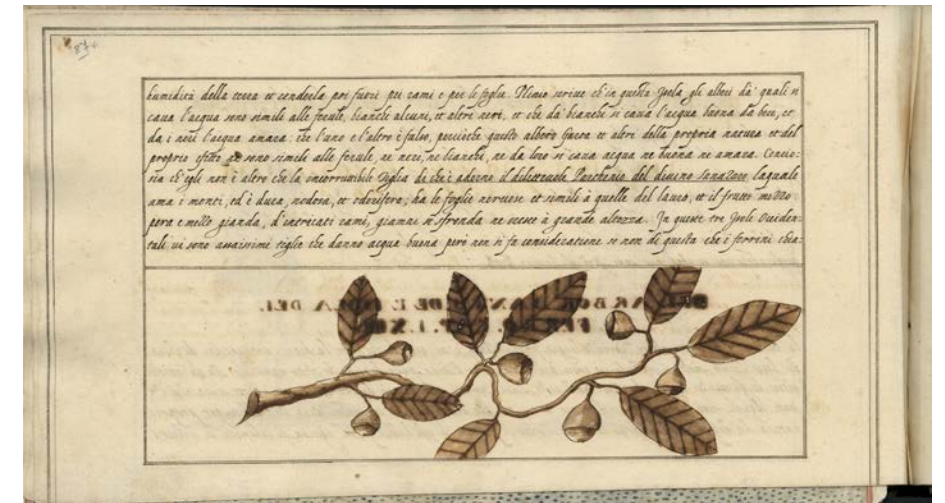 87
humidità della terra et renderla poi fuori pei rami e per le foglie. Plinio scrive ch'in questa Isola gli alberi da' quali si
cava l'acqua sono simili alle ferule, bianchi alcuni, et altri neri, et che da' bianchi si cava l'acqua buona da bere, et
da i neri l'acqua amara: che l'uno e l'altro è falso, percioche questo albero Garoe et altri della propria natura et del
proprio effetto ne sono simili alle ferule, ne neri, ne bianchi, ne da loro si cava acqua ne buona ne amara. Concio:
sia ch'egli non è altro che la incorruttibile Tiglia di che è adorno il dilettevole Parthenio del divino Sanazaro, laquale
ama i monti, ed è dura, nodosa, et odorifera; ha le foglie nervose et simili à quelle del lauro, et il frutto mezzo
pera e mezzo gianda, d'intricati rami, giamai si sfronda ne cresce à grande altezza. In queste tre Isole Occiden:
tali vi sono assaissime tiglie che danno acqua buona però non si fa consideratione se non di questa che i ferrini chia:
DEL ARBOR SANTO DE L'ISOLA DEL
FERRO. CAP. LXIII